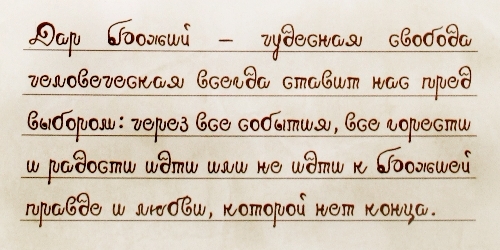 Дар Божий – чудесная свобода
человеческая всегда ставит нас пред
выбором: через все события, все горести
и радости идти или не идти к Божией
правде и любви, которой нет конца.